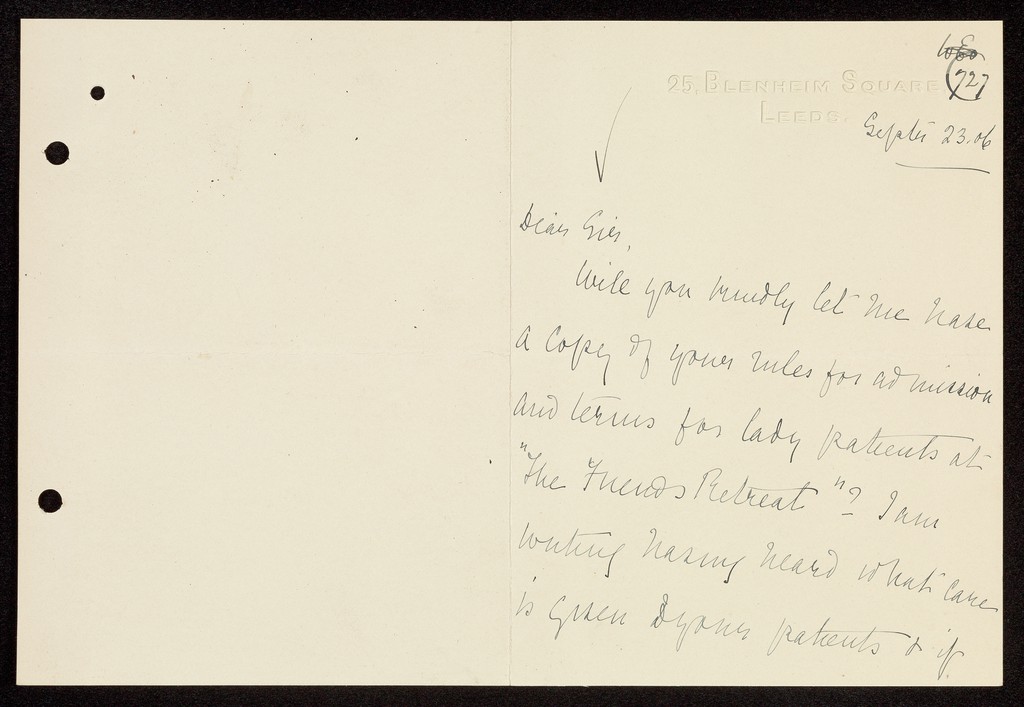 727
25, BLENHEIM SQUARE,
LEEDS.
Septr 23.06
Dear Sir,
Will you kindly let me have
a copy of your rules for admission
and terms for lady patients at
"The Friends Retreat"? I am
writing having heard what care
is given to your patients & if